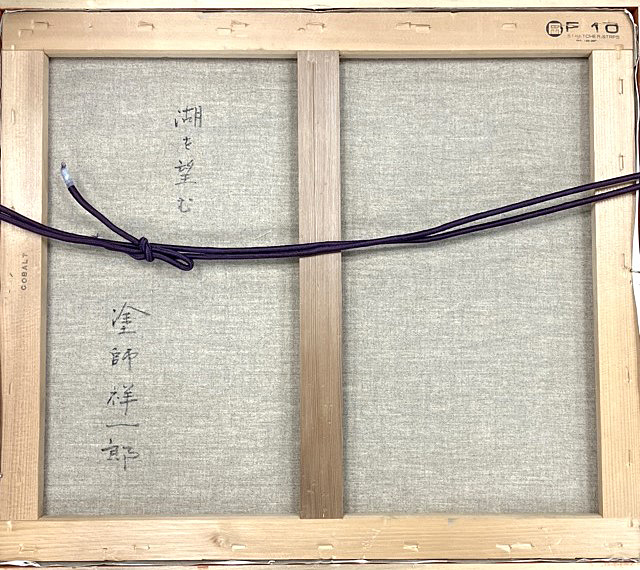 F 10
STRETCHER STRIPS
湖を望む
塗師祥一郎
COBALT